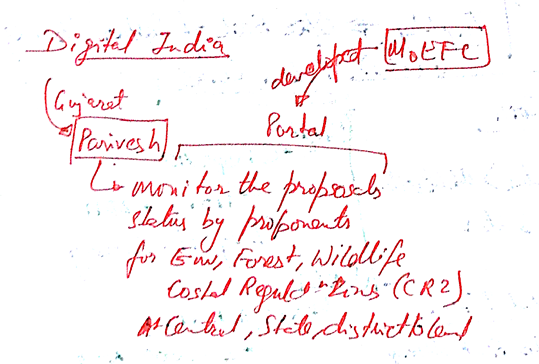 Digital India
developed MoEFC
Gujarat
Parivesh
Portal
monitor the proposals
status by proponents
for Env, Forest, Wildlife
Costal Regulations (CRZ)
At Central, State, district level